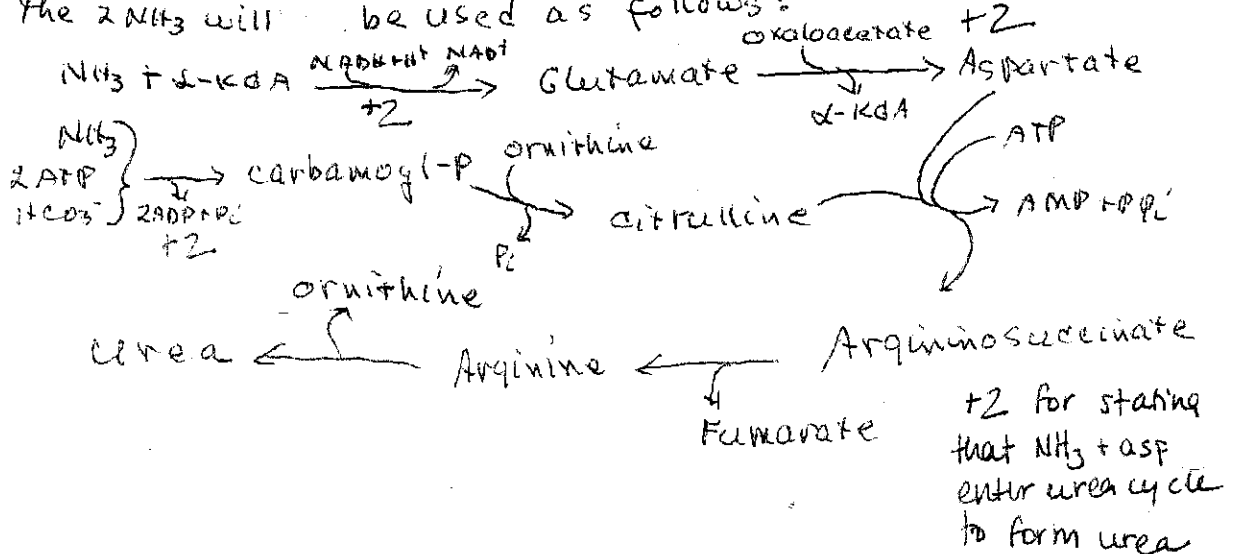 The 2 NH3 will be used as follows:
oxaloacetate +2
NADH+H+ NAD+
NH3 + α-KGA → Glutamate → Aspartate
+2 α-KGA
NH3 ornithine ATP
2 ATP → carbamoyl-P
HCO3- 2ADP+Pi citrulline AMP + PPi
+2 Pi
ornithine
Urea ← Arginine ← Argininosuccinate
Fumarate
+2 for stating
that NH3 + asp
enter urea cycle
to form urea